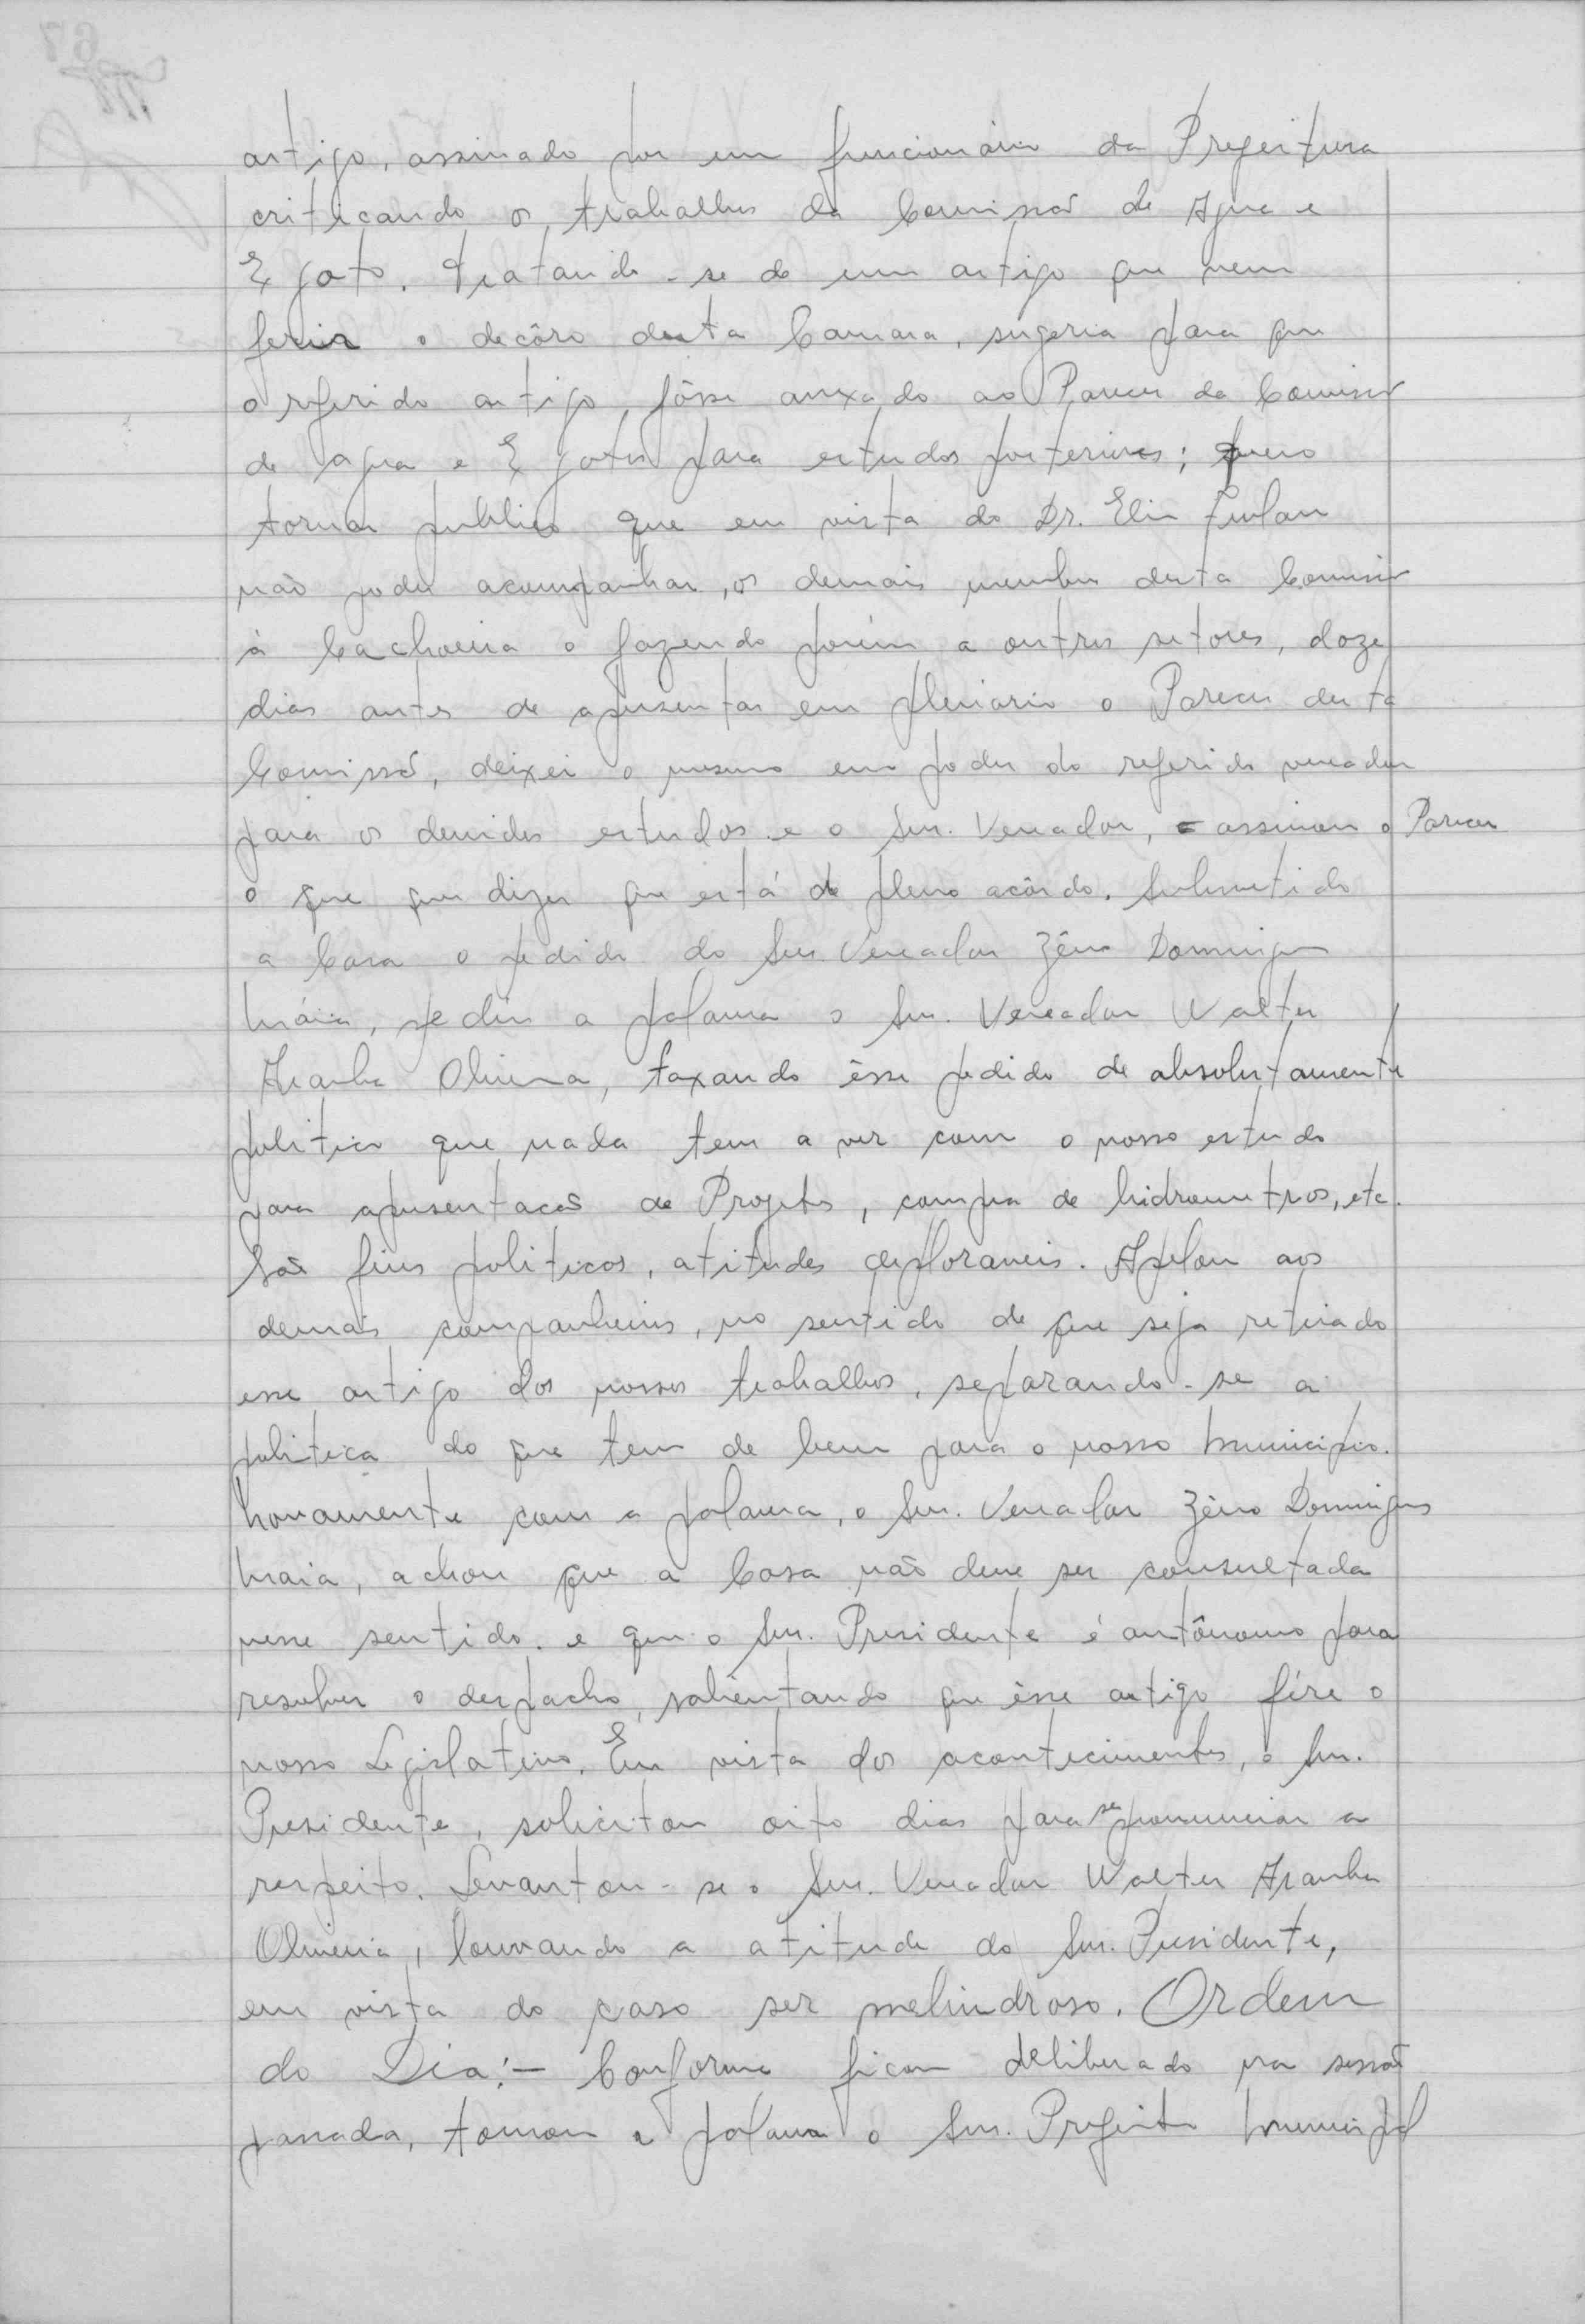 artigo, assinado por um funcionário da Prefeitura
criticando os trabalhos da Comissão de Agua e
Esgoto. Tratando-se de um artigo que vem
ferir o decôro desta Camara, sugeria para que
o referido artigo, fôsse anexado ao Parecer da Comissão
de agua e Esgotos para estudos posteriores; quero
tornar publico que em vista do Dr. Elio Furlan
não poder acompanhar, os demais membros desta Comissão
à Cachoeira o fazendo porém a outros setores, doze
dias antes de apresentar em plenario o Parecer desta
Comissão, deixei o mesmo em poder do referido vereador
para os devidos estudos e o Snr. Vereador, assinou o Parecer
o que quer dizer que está de pleno acôrdo. Submetido
a Casa o pedido do Snr. Vereador Zêno Domingues
Maia, pediu a palavra o Snr. Vereador Walter
Aranha Oliveira, taxando êsse pedido de absolutamente
politico que nada tem a ver com o nosso estudo
para apresentacão de Projetos, compra de hidrometros, etc.
São fins politicos, atitudes deploraveis. Apelou aos
demais companheiros, no sentido de que seja retirado
esse artigo dos nossos trabalhos, separando-se a
politica do que tem de bem para o nosso Municipio.
Novamente com a palavra, o Snr. Vereador Zêno Domingues
Maia, achou que a Casa não deve ser consultada
nesse sentido. e que o Snr. Presidente é autônomo para
resolver o despacho, salientando que êsse artigo fére o
nosso Legislativo. Em vista dos acontecimentos, o Snr.
Presidente, solicitou oito dias para se pronunciar a
respeito. Levantou-se o Snr. Vereador Walter Aranha
Oliveira, louvando a atitude do Snr. Presidente,
em vista do caso ser melindroso. Ordem
do Dia:- Conforme ficou deliberado na sessão
passada, tomou a palavra o Snr. Prefeito Municipal